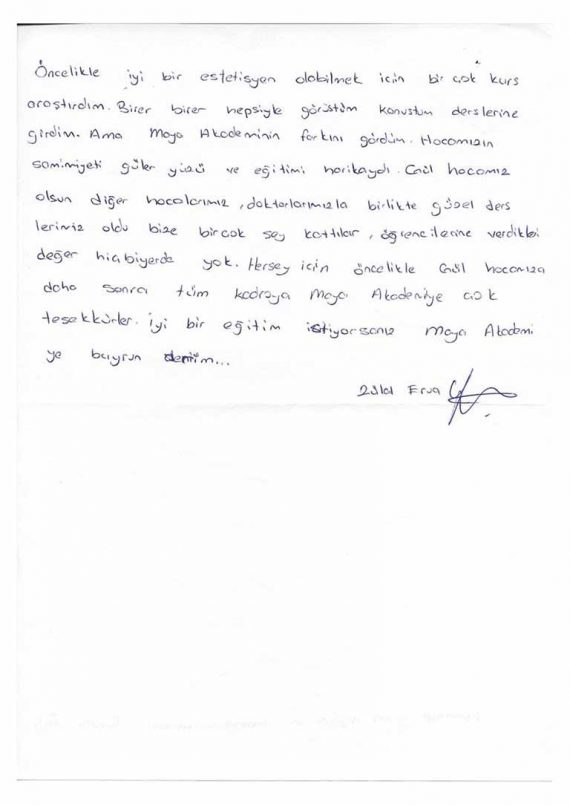 Öncelikle iyi bir estetisyen olabilmek için bir çok kurs
araştırdım. Birer birer hepsiyle görüştüm konuştum derslerine
girdim. Ama Maya Akademinin farkını gördüm. Hocamızın
samimiyeti güler yüzü ve eğitimi harikaydı. Gül hocamız
olsun diğer hocalarımız, doktorlarımızla birlikte güzel ders
lerimiz oldu bize birçok şey kattılar, öğrencilerine verdikleri
değer hiçbiyerde yok. Hersey için öncelikle Gül hocamıza
daha sonra tüm kadroya Maya Akademiye çok
teşekkürler. İyi bir eğitim istiyorsanız Maya Akademi
ye buyrun derim...
Zülal Erva